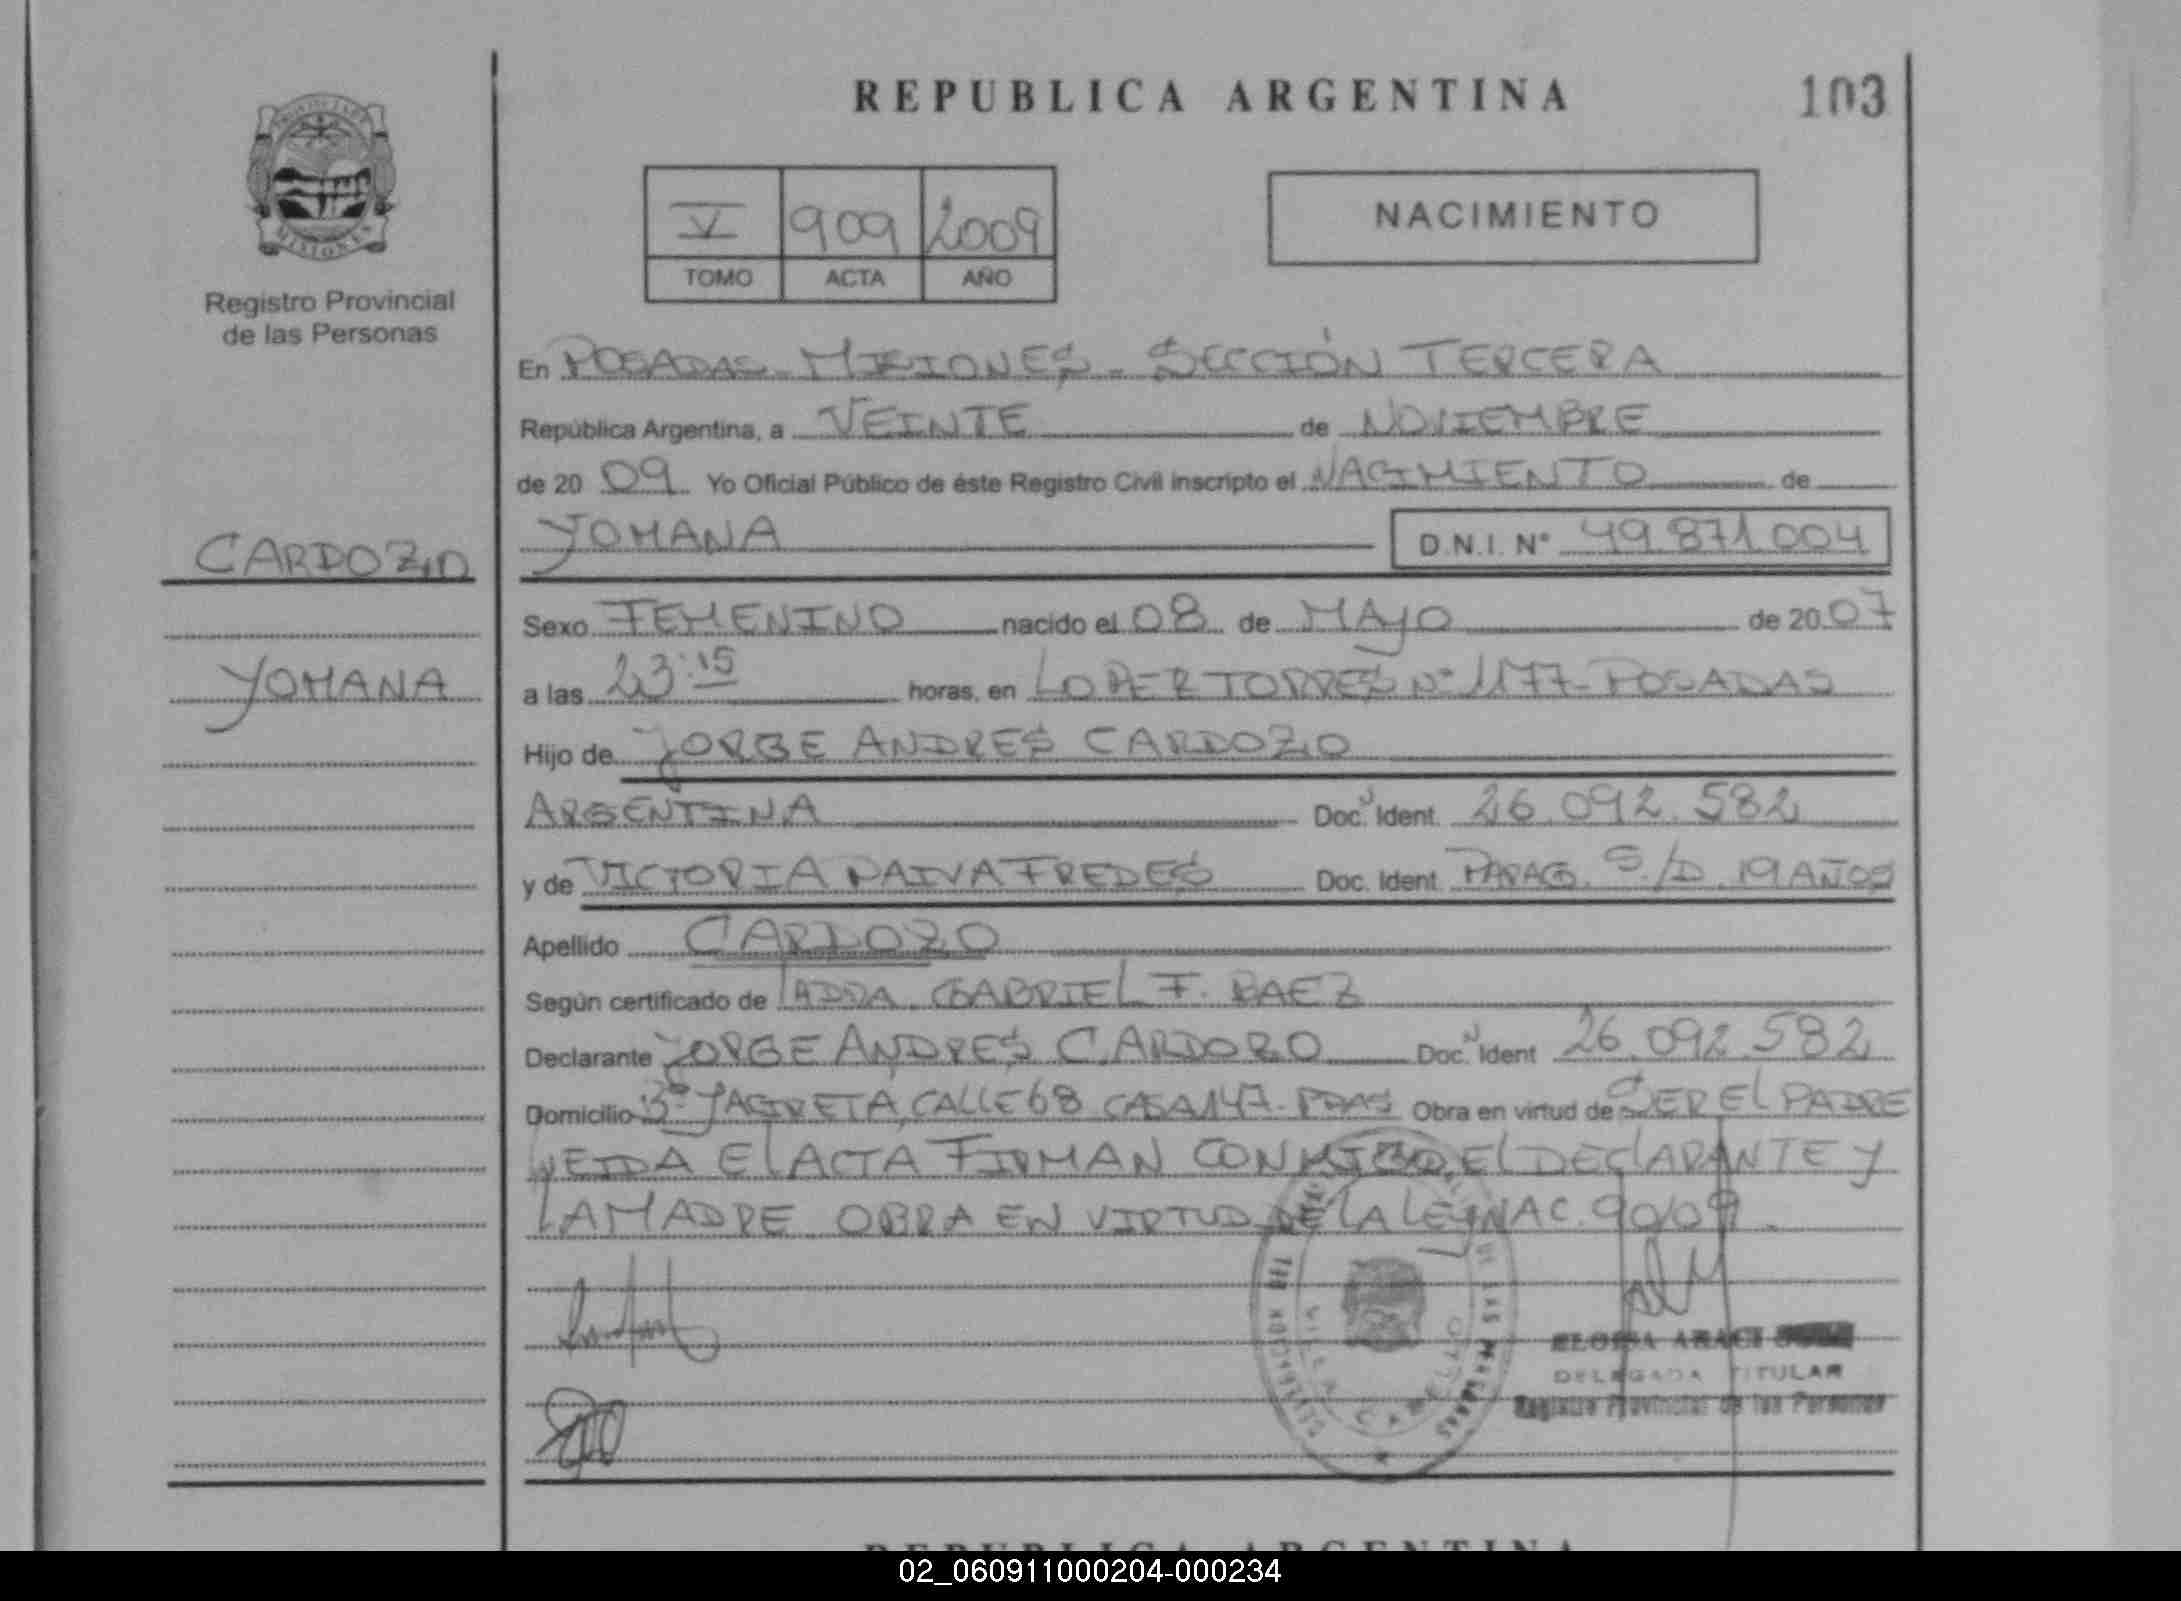 REPUBLICA ARGENTINA
103
V 909 2009
TOMO ACTA AÑO
NACIMIENTO
MISIONES
Registro Provincial
de las Personas
En POSADAS - MISIONES - SECCIÓN TERCERA
República Argentina, a VEINTE de NOVIEMBRE
de 20 09 Yo Oficial Público de éste Registro Civil inscripto el NACIMIENTO de
YOHANA D.N.I. N° 49.871.004
CARDOZO
YOHANA
Sexo FEMENINO nacido el 08 de MAYO de 20 07
a las 23:15 horas, en LOPEZ TORRES N° 1177 - POSADAS
Hijo de JORGE ANDRES CARDOZO
ARGENTINA Doc. Ident. 26.092.582
y de VICTORIA PAIVA FREDES Doc. Ident. PARAG. S/D. 19 AÑOS
Apellido CARDOZO
Según certificado de GABRIEL F. BAEZ
Declarante JORGE ANDRES CARDOZO Doc. Ident 26.092.582
Domicilio CALLE 68 CASA 147 - PDAS Obra en virtud de SER EL PADRE
LEIDA EL ACTA FIRMAN CONMIGO EL DECLARANTE Y
LA MADRE OBRA EN VIRTUD DE LA LEY NAC. 90/09.
ELOISA ARACI
DELEGADA TITULAR
Registro Provincial de las Personas
REPUBLICA ARGENTINA
02_060911000204-000234